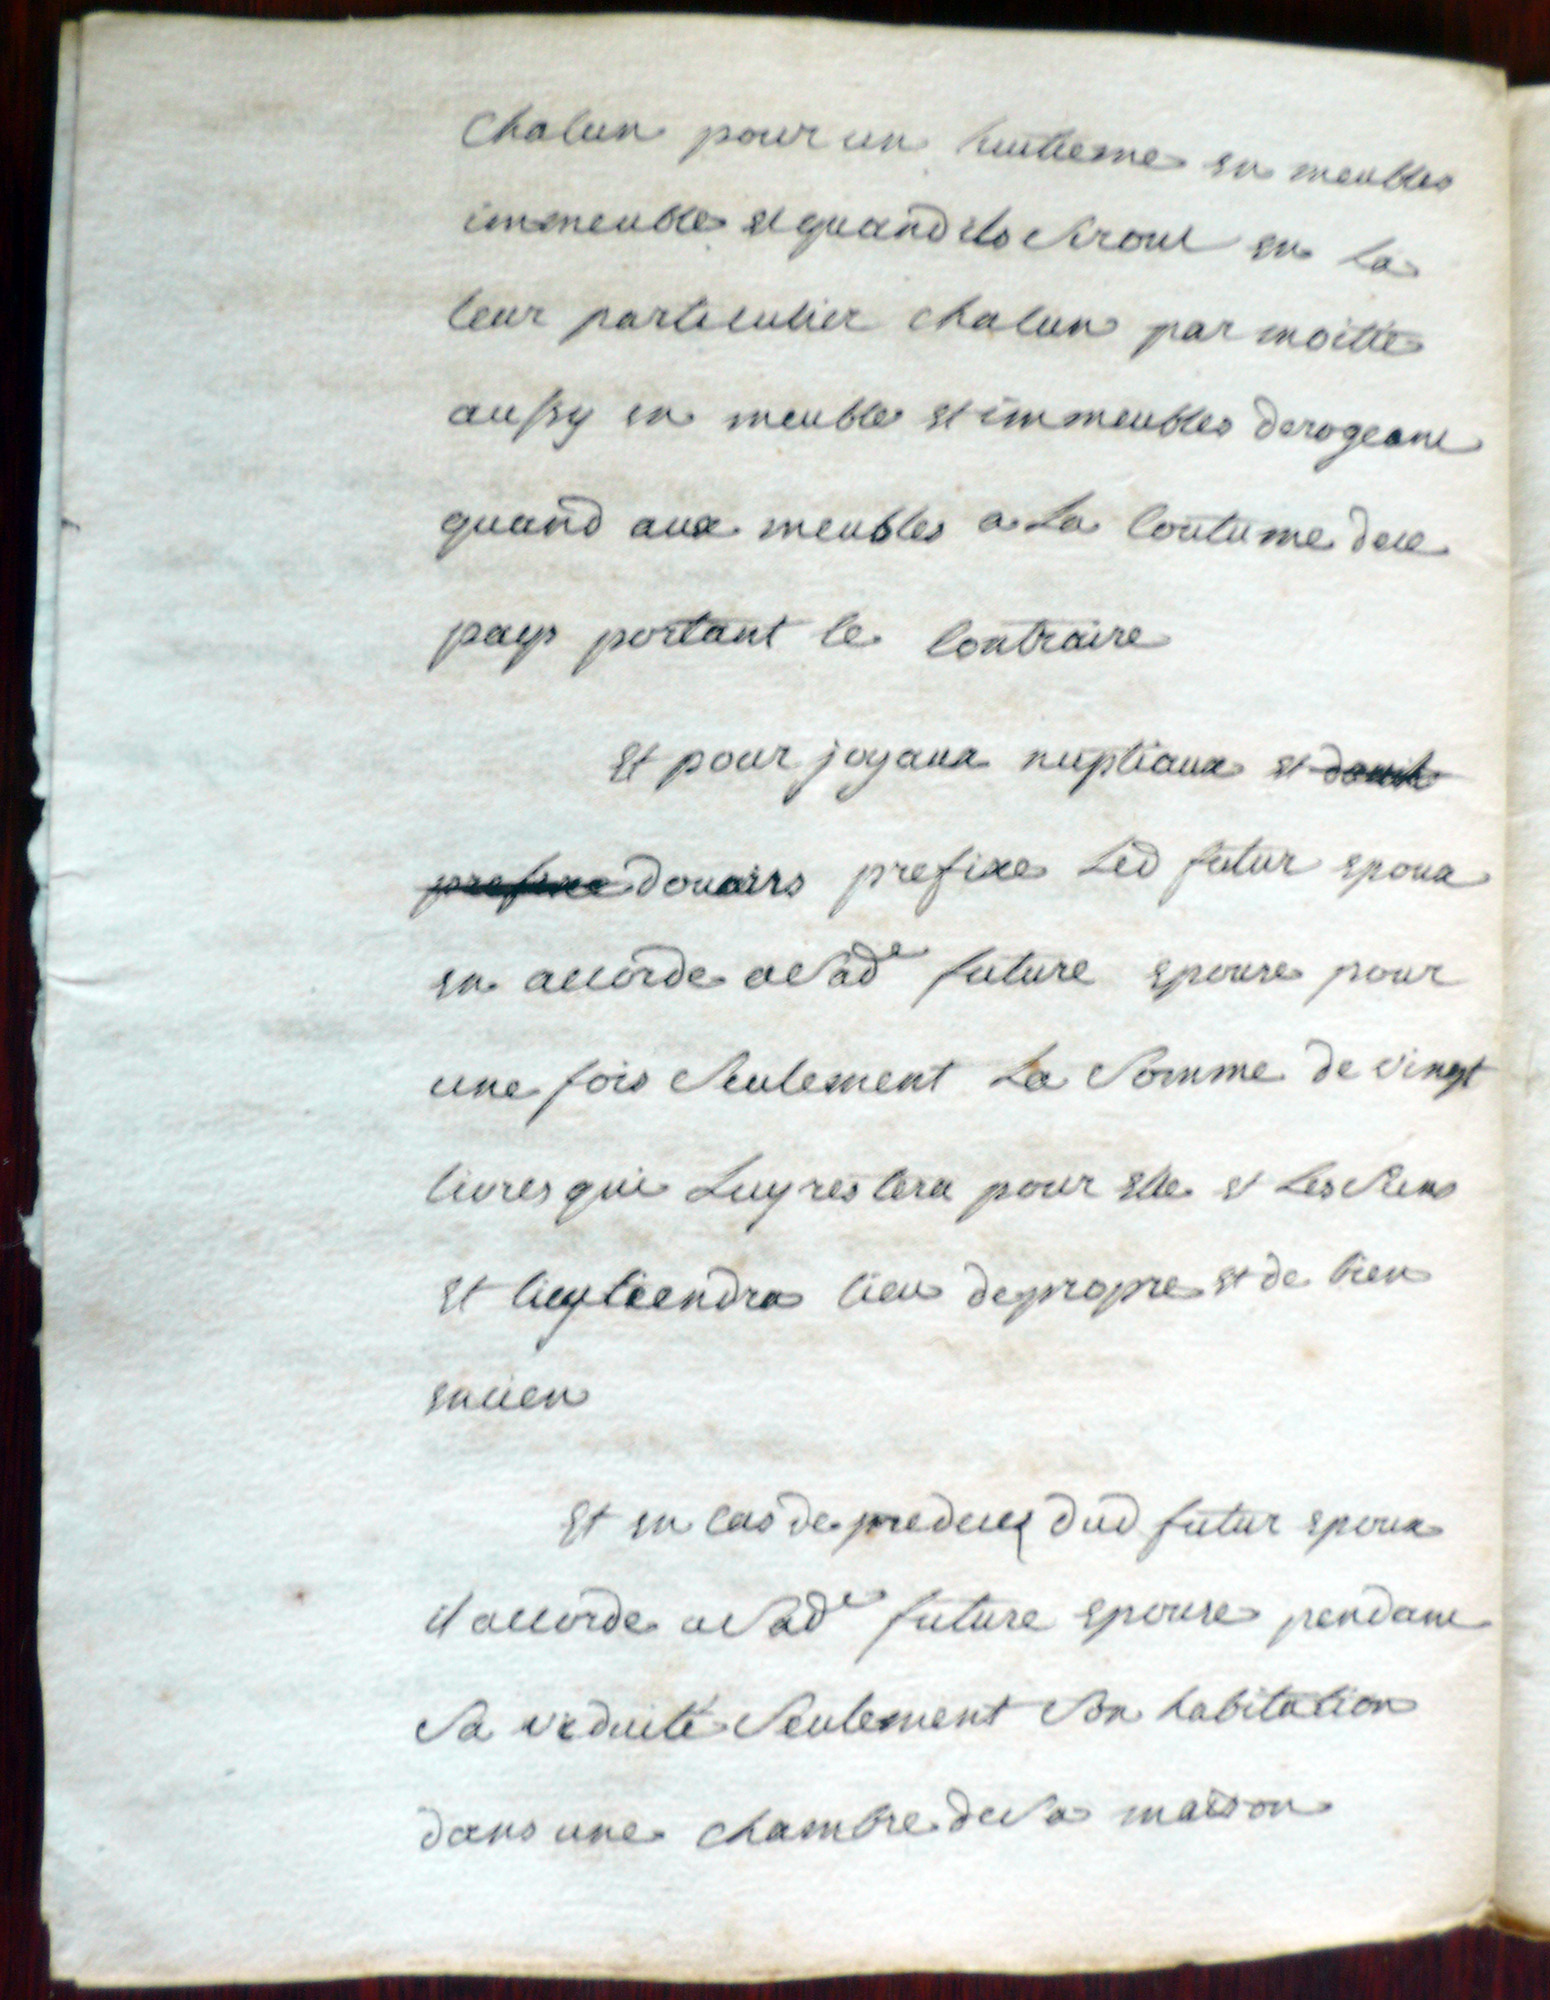 chacun pour un huitieme en meubles
immeuble et quand ils seront en La
leur particulier chacun par moitié
aussy en meuble et immeubles derogeant
quand aux meubles a La Coutume de ce
pays portant le Contraire
Et pour joyaux nuptiaux et douih
prefixe douairs prefixe Led futur epoux
en accorde a sad.e future epouse pour
une fois seulement La somme de vingt
livres qui Luy restera pour elle et Les siens
et luy tiendra lieu de propre et de bien
encien
Et en cas de predeces dud futur epoux
il accorde a sad.e future epouse pendant
sa viduité seulement son habitation
dans une chambre de sa maison